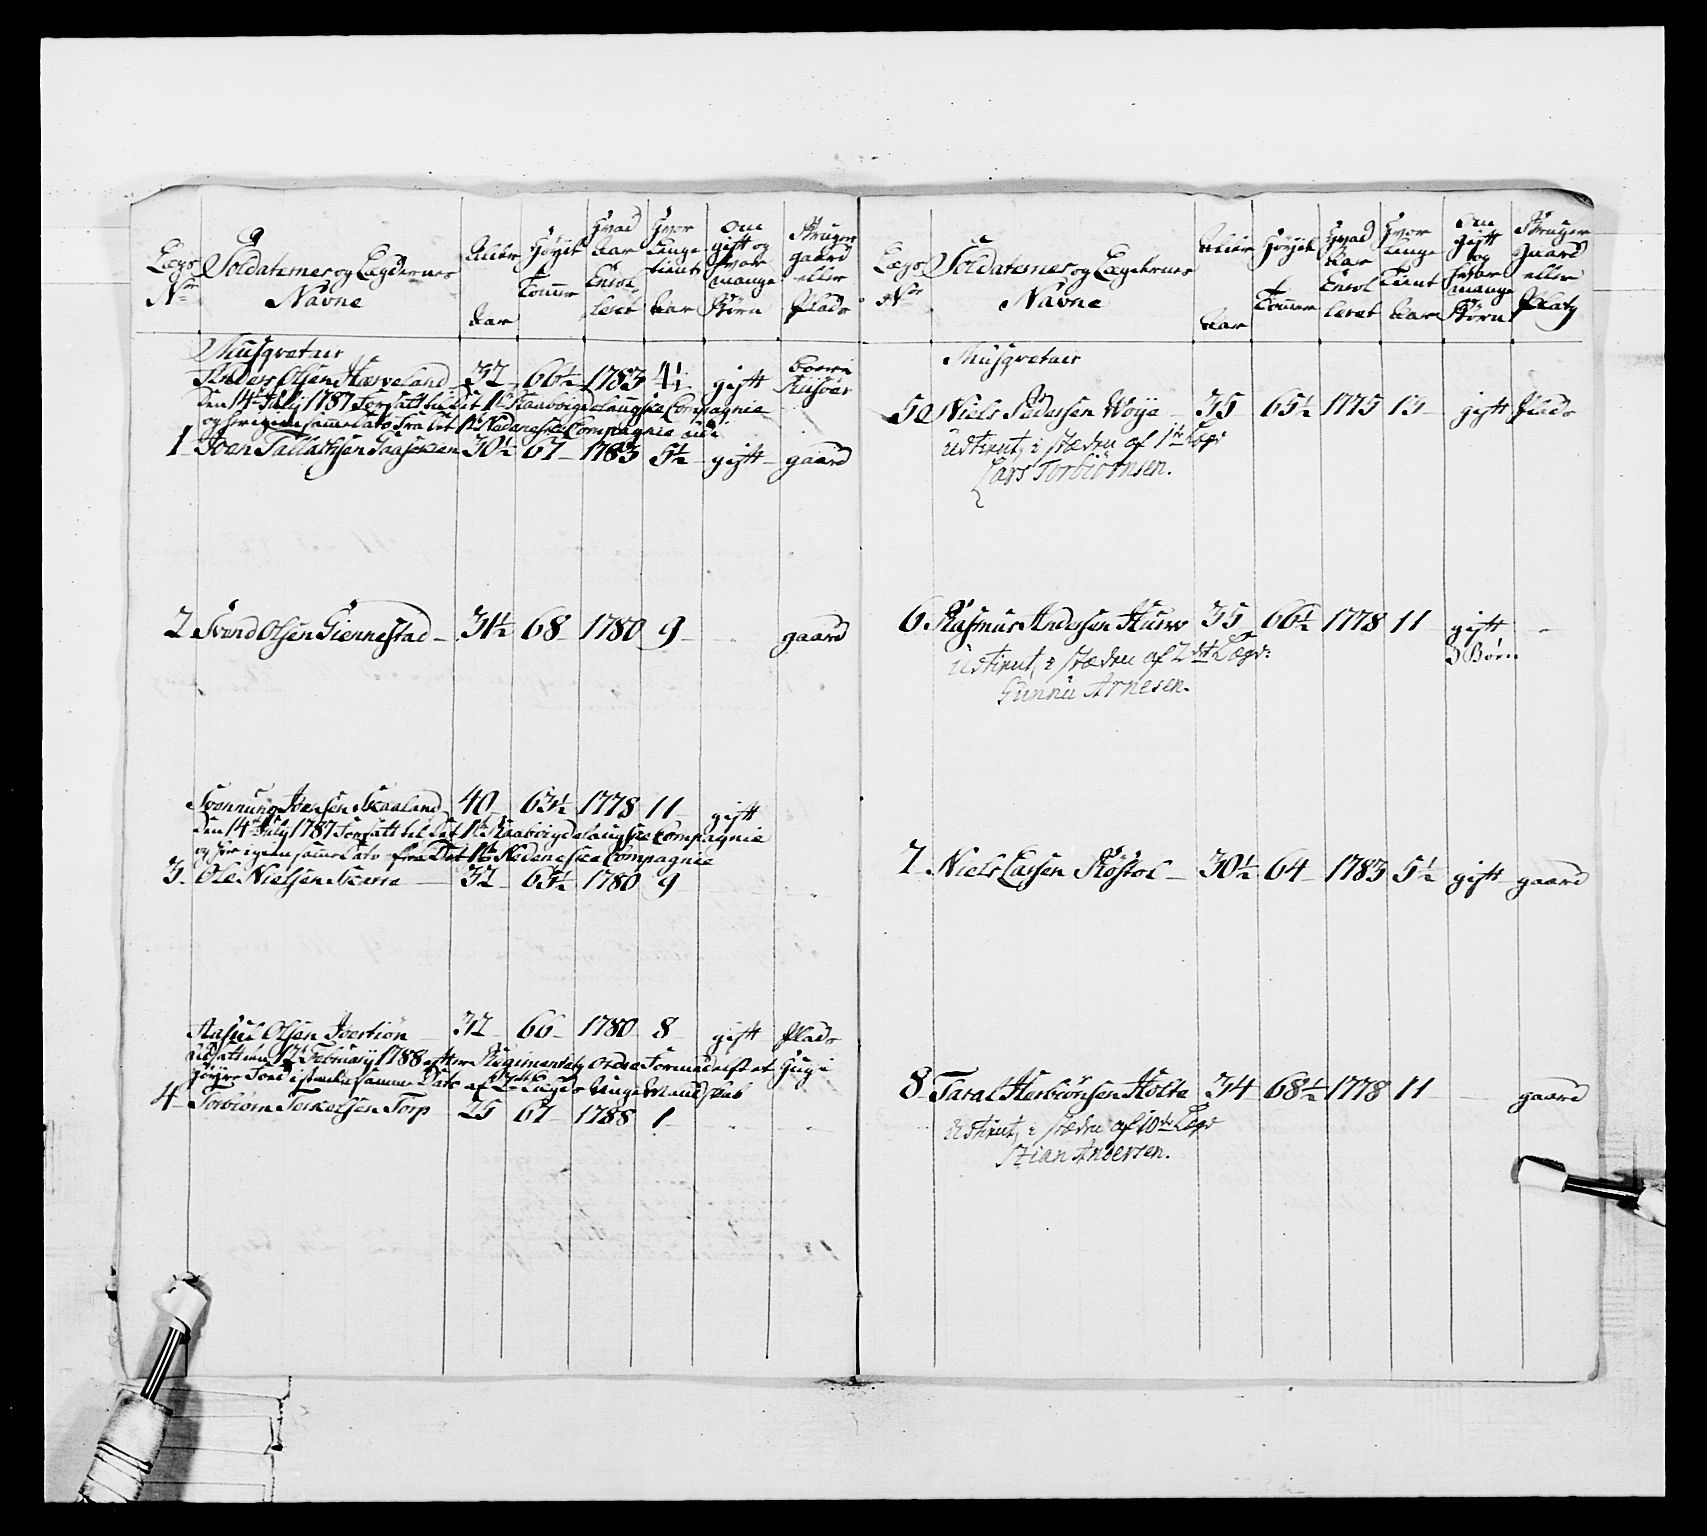 Legs No
Soldaternes og Legdernes
Navne
Alder
Aar
Høyde
Tommer
Hvad
Aar
Enrol
leret
Hvor
Længe
tient
Aar
Om
gift og
hvor
mange
Børn
Bruger
gaard
eller
Plads
Musqveteer
Anders Olsen Harveland 32 66½ 1783 4½ gift
Den 14de July 1787 forsatt til det 1te Raabøigdelaugske Compagnie
og her igien samme Dato fra det 1te Nedeneske Compagnie
1 Joen Tallaksen 30½ 67 1783 5½ gift gaard
2 Svend Olsen Giennestad 31½ 68 1780 9 gaard
Svennung Joensen Aaland 40 63½ 1778 11 gift
Den 14de July 1787 forsatt til det 1te Raabøigdelaugske Compagnie
og her igien samme Dato fra Det 1te Nedeneske Compagnie
3 Ole Nielsen 32 63½ 1780 9
Aasul Olsen 32 66 1780 8 gift Plads
udsatt den 12te February 1788 efter Regimentetz Ordre Formedelst et Hug i
høyre Foed i stæden samme Dato af Legds Unge Mandskab
4 Torbiørn Terkelsen Torp 25 67 1788 1
Legs No
Soldaternes og Legdernes
Navne
Alder
Aar
Høyde
Tommer
Hvad
Aar
Enrol
leret
Hvor
Længe
Tient
Aar
Om
gift
og
hvor
mange
Børn
Bruger
Gaard
eller
Platz
Musqveteer
5 Niels Pedersen Woye 35 65½ 1775 13 gift Plads
Udtient, i stæden af 1te Legd
Lars Torbiørnsen.
6 Rasmus Andersen 35 66½ 1778 11 gift
3 Børn
Udtient, i stæden af 2det Legd:
Gunnu Arnesen.
7 Niels Larsen Røstøl 30½ 64 1783 5½ gift gaard
8 Taral Herbiørnsen Holte 34 68½ 1778 11 gaard
Udtient, i stæden af 10de Legd
Stian Andersen.